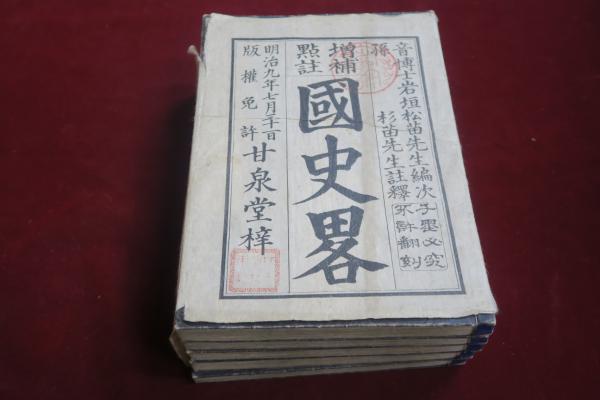 音博士岩垣松苗先生編次
孫
杉苗先生註釋
不許翻刻
增補
點註
國史畧
明治九年七月
版權免許
甘泉堂梓